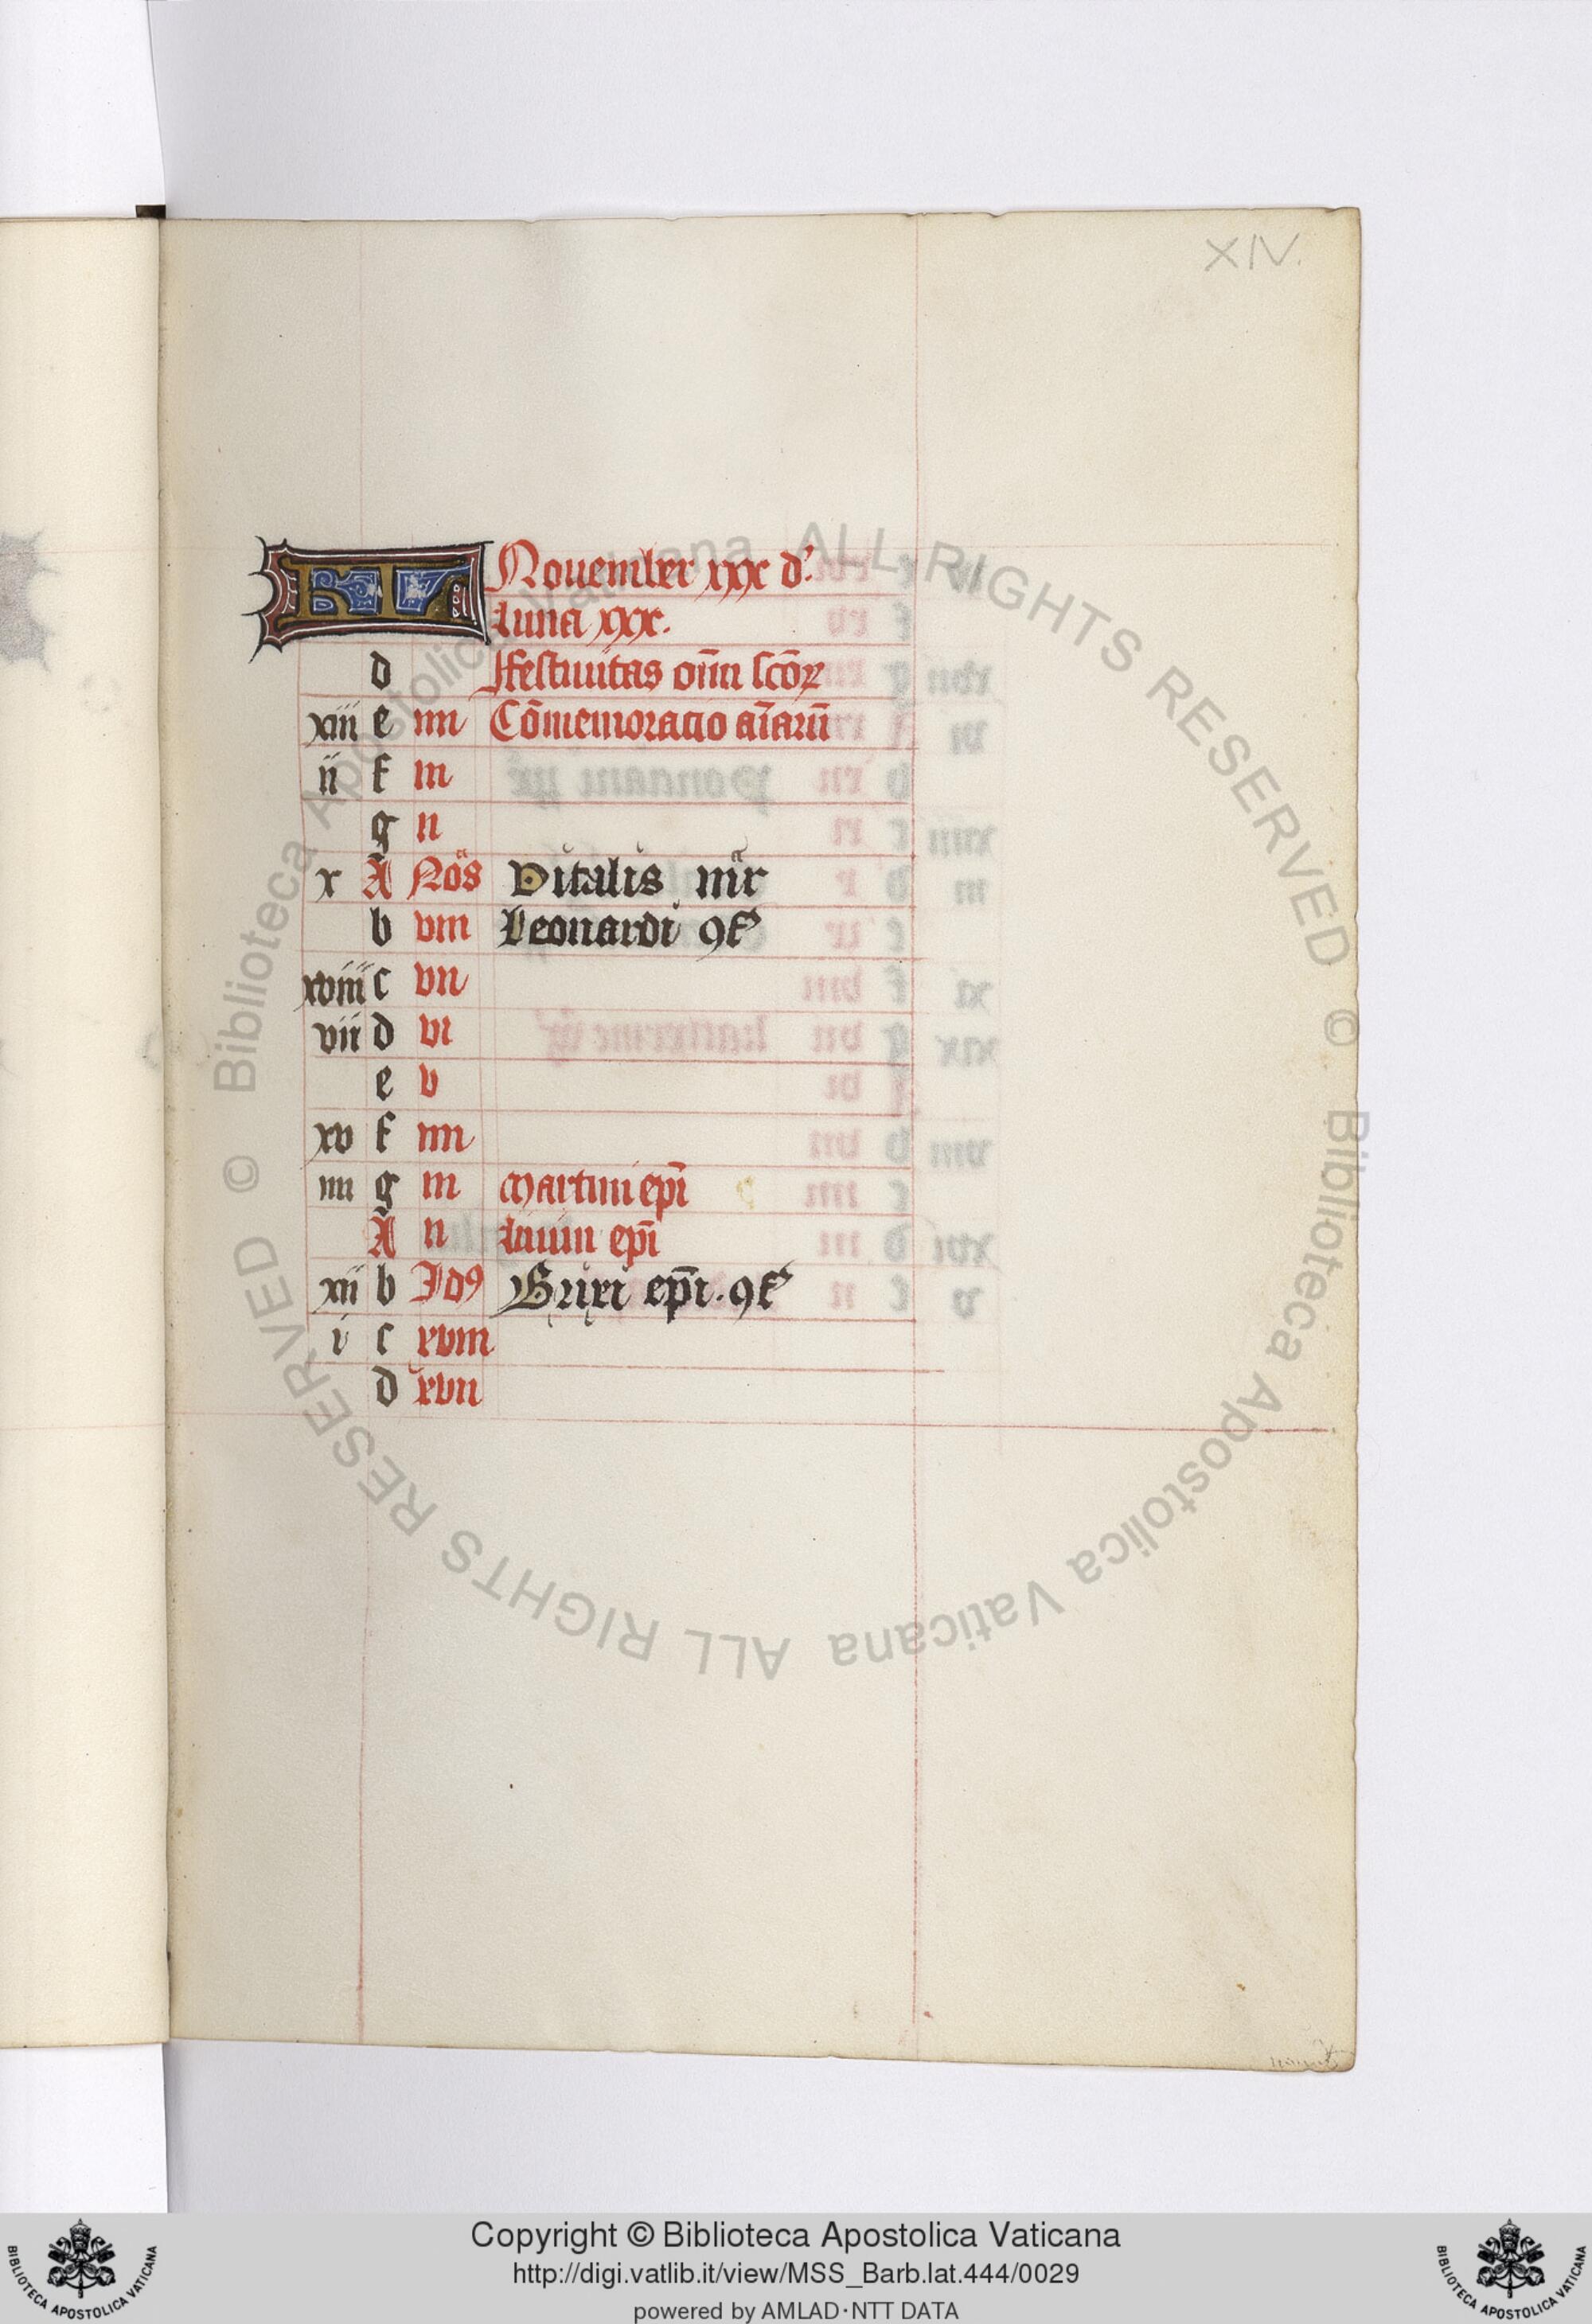 XIV.
KL Nouember xxx d'.
Luna xxx.
d ffestiuitas om̄i sc̄oꝝ
xiii e iiii Cōmemoracio aīarū
ii f iii
g ii
x A Noᵃs Vitalis mᵃr
b viii Leonardi ꝯf
xviii c vii
vii d vi
e v
xv f iiii
iiii g iii Martini ep̄i
A ii Liuin ep̄i
xii b Idꝰ Brixi ep̄i. ꝯf
i c xviii
d xvii
© Biblioteca Apostolica Vaticana ALL RIGHTS RESERVED © Biblioteca Apostolica Vaticana ALL RIGHTS RESERVED
Copyright © Biblioteca Apostolica Vaticana
http://digi.vatlib.it/view/MSS_Barb.lat.444/0029
powered by AMLAD·NTT DATA
BIBLIOTECA APOSTOLICA VATICANA
BIBLIOTECA APOSTOLICA VATICANA